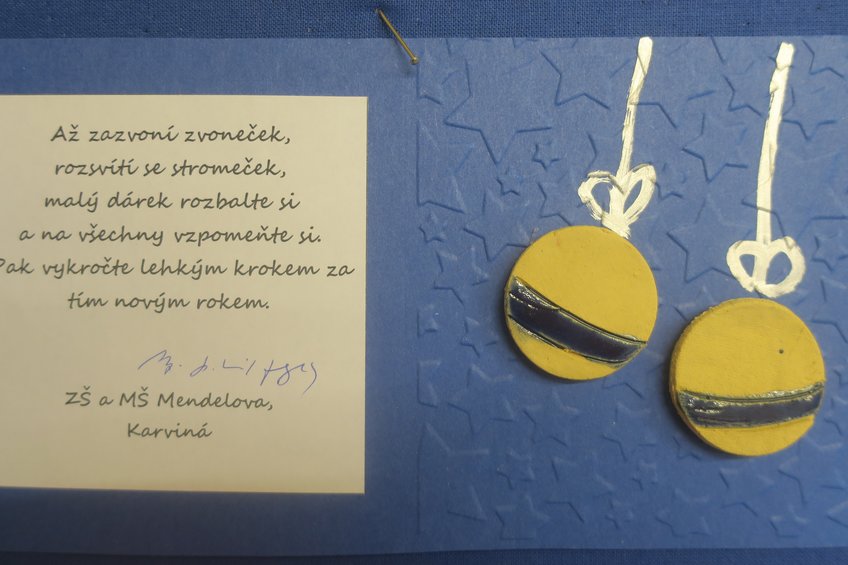 Až zazvoní zvoneček,
rozsvítí se stromeček,
malý dárek rozbalte si
a na všechny vzpomeňte si.
Pak vykročte lehkým krokem za
tím novým rokem.
ZŠ a MŠ Mendelova,
Karviná